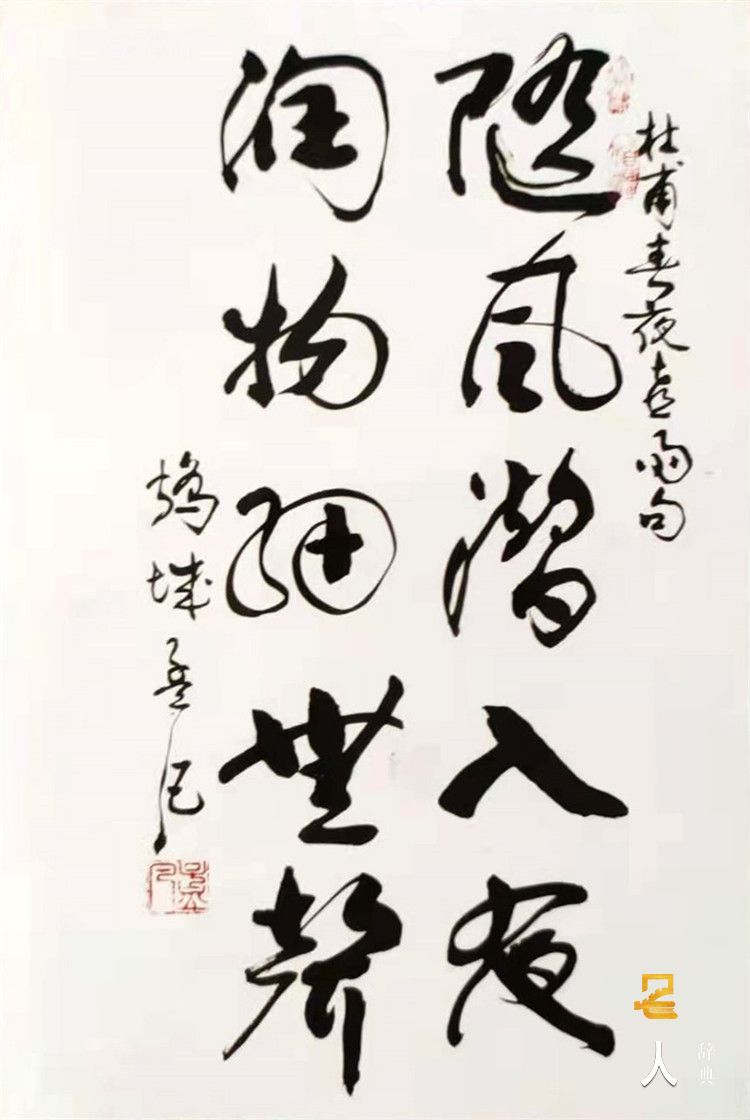 杜甫春夜喜雨句
隨風潛入夜
潤物細無聲
城孟
人
辞典